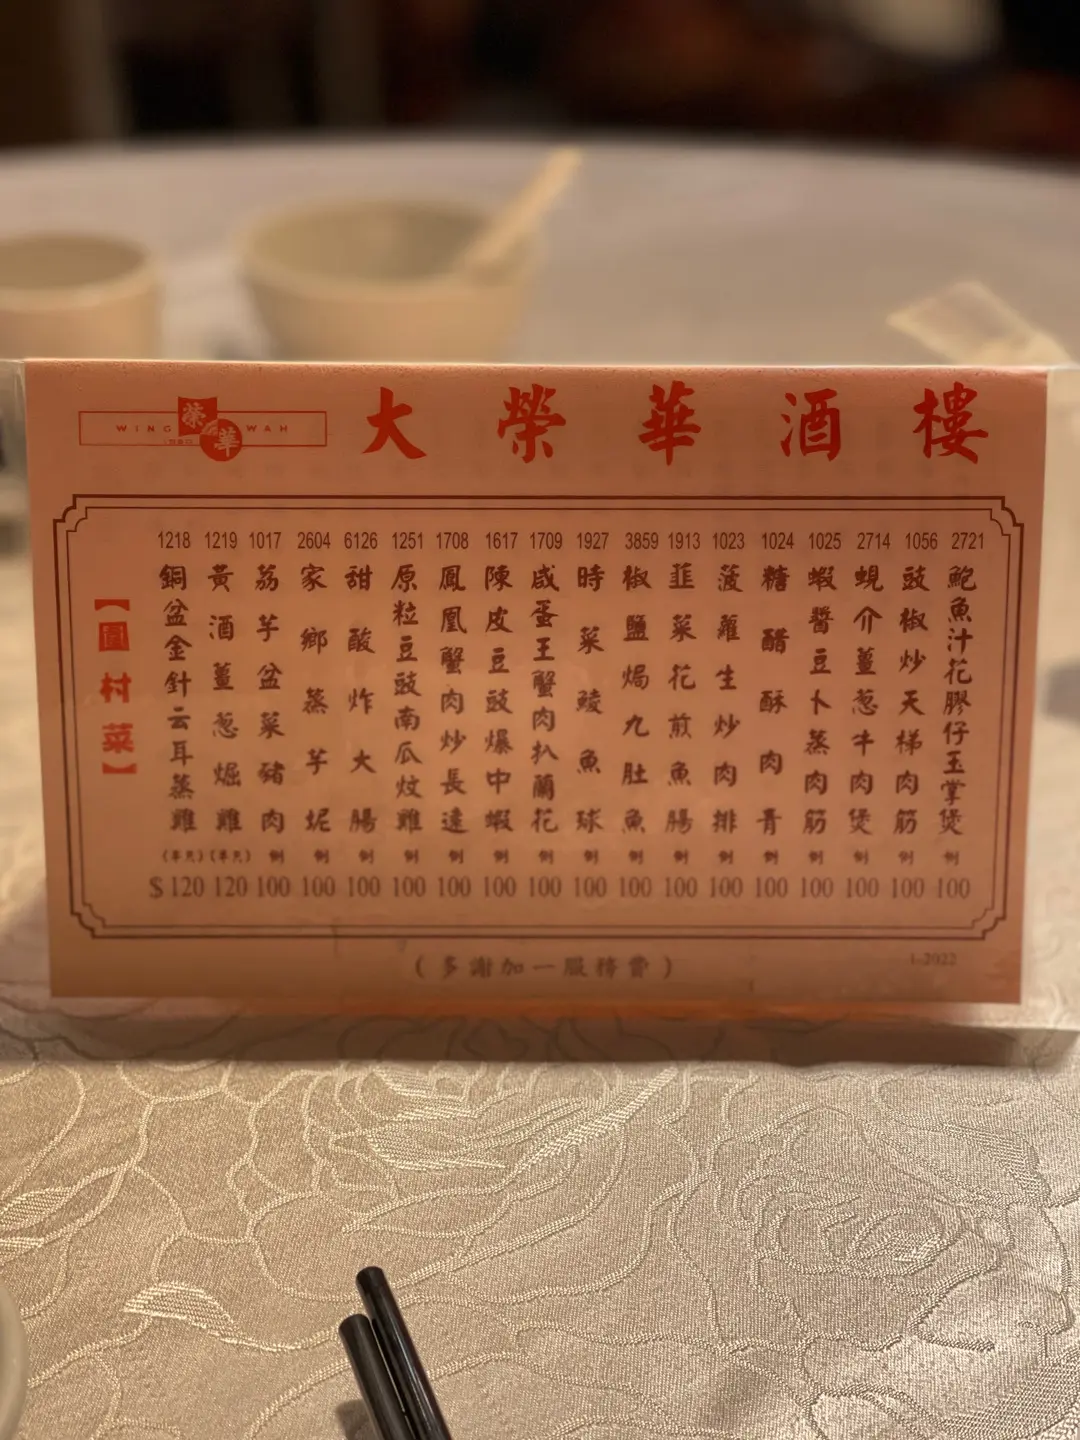 大榮華酒樓
WING WAH
榮華
【圍村菜】
2721 鮑魚汁花膠仔玉掌煲 例 100
1056 豉椒炒天梯肉筋 例 100
2714 蜆介薑葱牛肉煲 例 100
1025 蝦醬豆卜蒸肉筋 例 100
1024 糖醋酥肉青 例 100
1023 菠蘿生炒肉排 例 100
1913 韮菜花煎魚腸 例 100
3859 椒鹽焗九肚魚 例 100
1927 時菜鯪魚球 例 100
1709 咸蛋王蟹肉扒蘭花 例 100
1617 陳皮豆豉爆中蝦 例 100
1708 鳳凰蟹肉炒長遠 例 100
1251 原粒豆豉南瓜炆雞 例 100
6126 甜酸炸大腸 例 100
2604 家鄉蒸芋坭 例 100
1017 荔芋盆菜豬肉 例 100
1219 黃酒薑葱焗雞 (半只) 120
1218 銅盆金針云耳蒸雞 (半只) $120
(多謝加一服務費)
1-2022